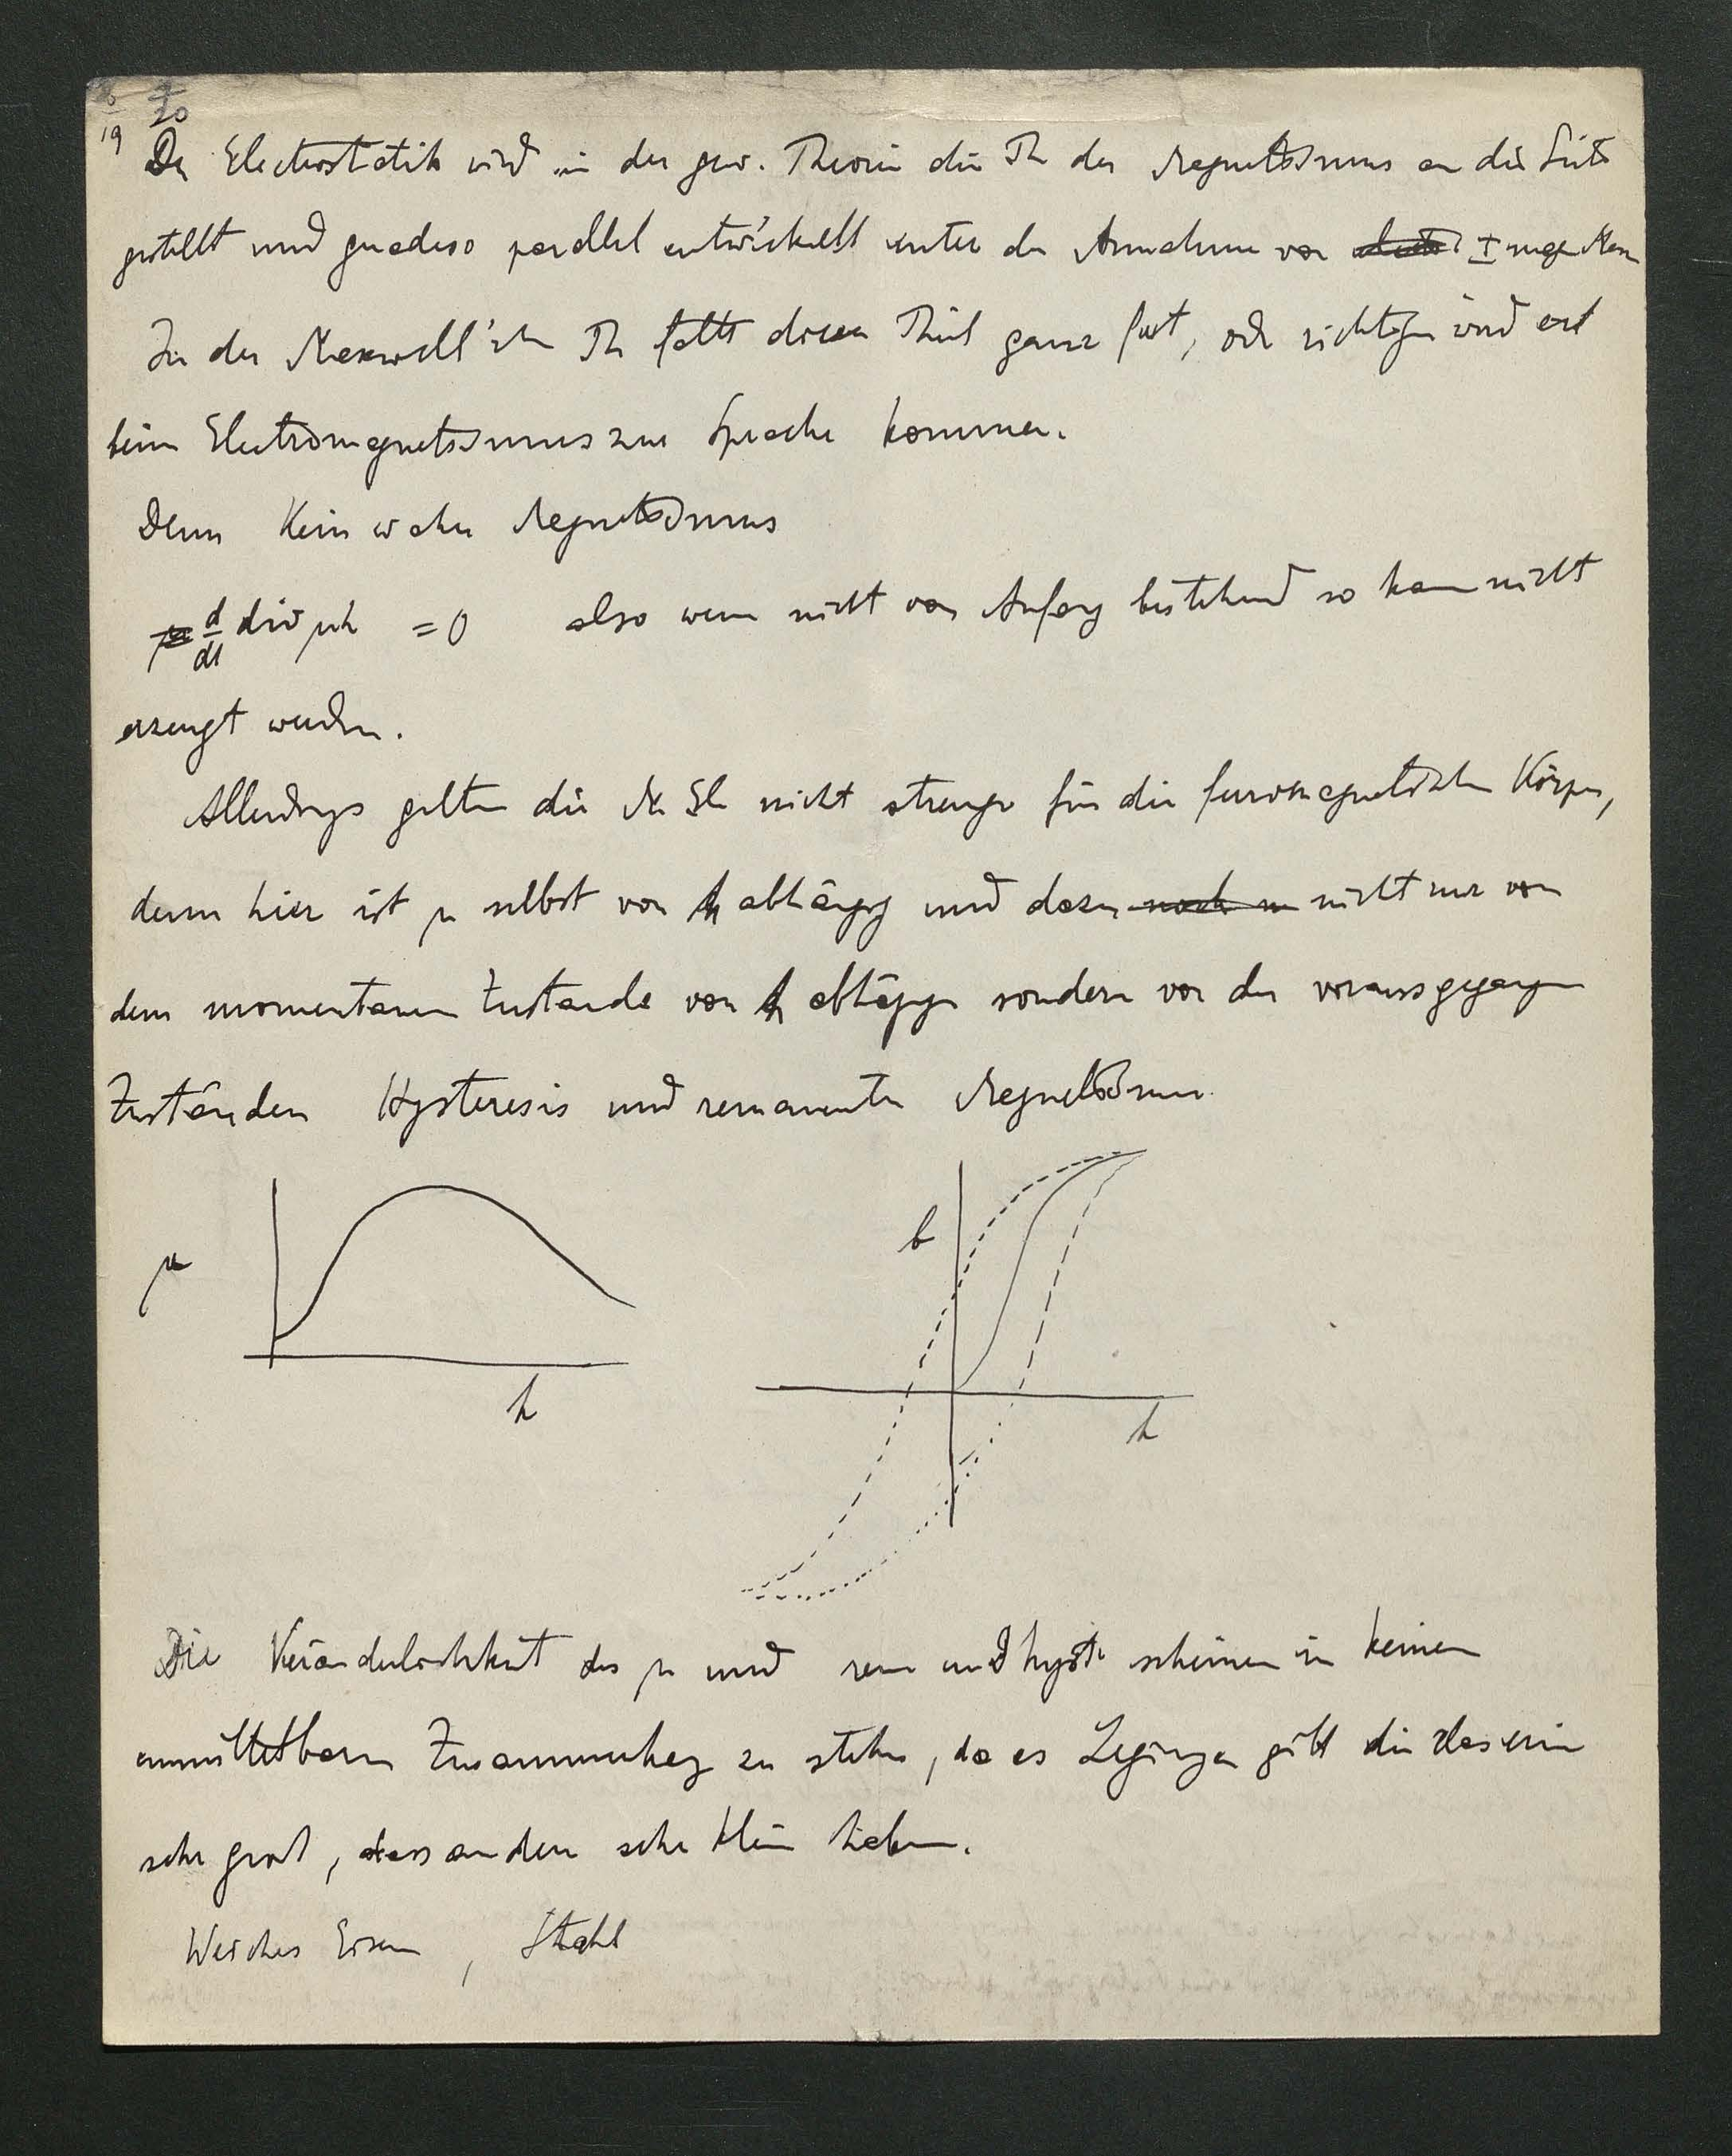 20
19
Der Electrostatik wird in der gew. Theorie die Th des Magnetismus an die Seite
gestellt und geradeso parallel entwickelt unter der Annahme von ± magn Mass
In der Maxwell'schen Th fällt dieser Theil ganz fort, oder richtiger wird erst
beim Electromagnetismus zur Sprache kommen.
Denn Kein wahrer Magnetismus
d/dt div μh = 0 also wenn nicht von Anfang bestehend so kann nicht
erzeugt werden.
Allerdings gelten die M Gl nicht strenge für die ferromagnetischen Körper,
denn hier ist μ selbst von h abhängig und dazu noch nicht nur von
dem momentanen Zustande von h abhängig sondern von den vorausgegangen
Zuständen Hysteresis und remanenter Magnetismus
μ
h
b
h
Die Veränderlichkeit des μ und rem und hyst scheinen in keinem
unmittelbaren Zusammenhang zu stehen, da es Legirungen gibt die das eine
sehr gross, das andere sehr klein haben.
Weiches Eisen, Stahl